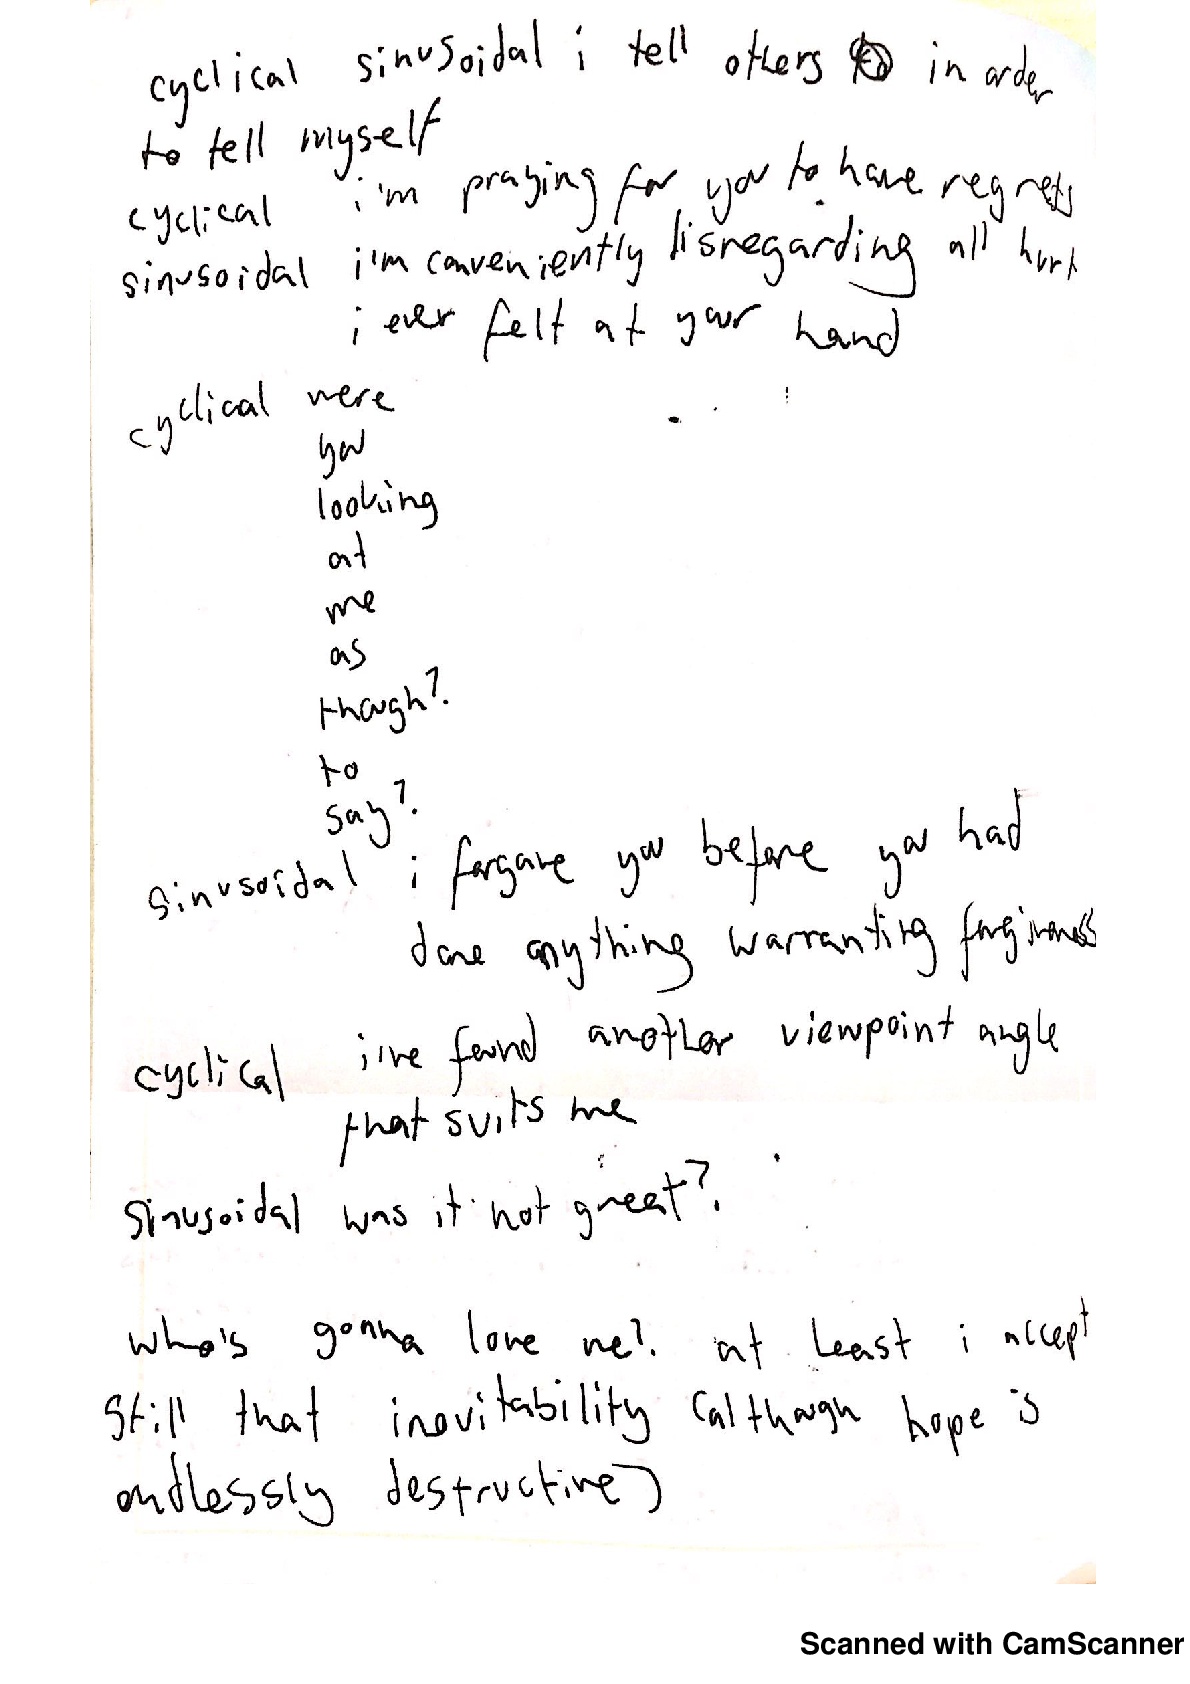 cyclical sinusoidal i tell others in order
to tell myself
cyclical i'm praying for you to have regrets
sinusoidal i'm conveniently disregarding all hurt
i ever felt at your hand
cyclical were
you
looking
at
me
as
though?.
to
say?.
sinusoidal i forgave you before you had
done anything warranting forgiveness
cyclical i've found another viewpoint angle
that suits me
sinusoidal was it not great?.
who's gonna love me?. at least i accept
still that inevitability (although hope is
endlessly destructive)
Scanned with CamScanner